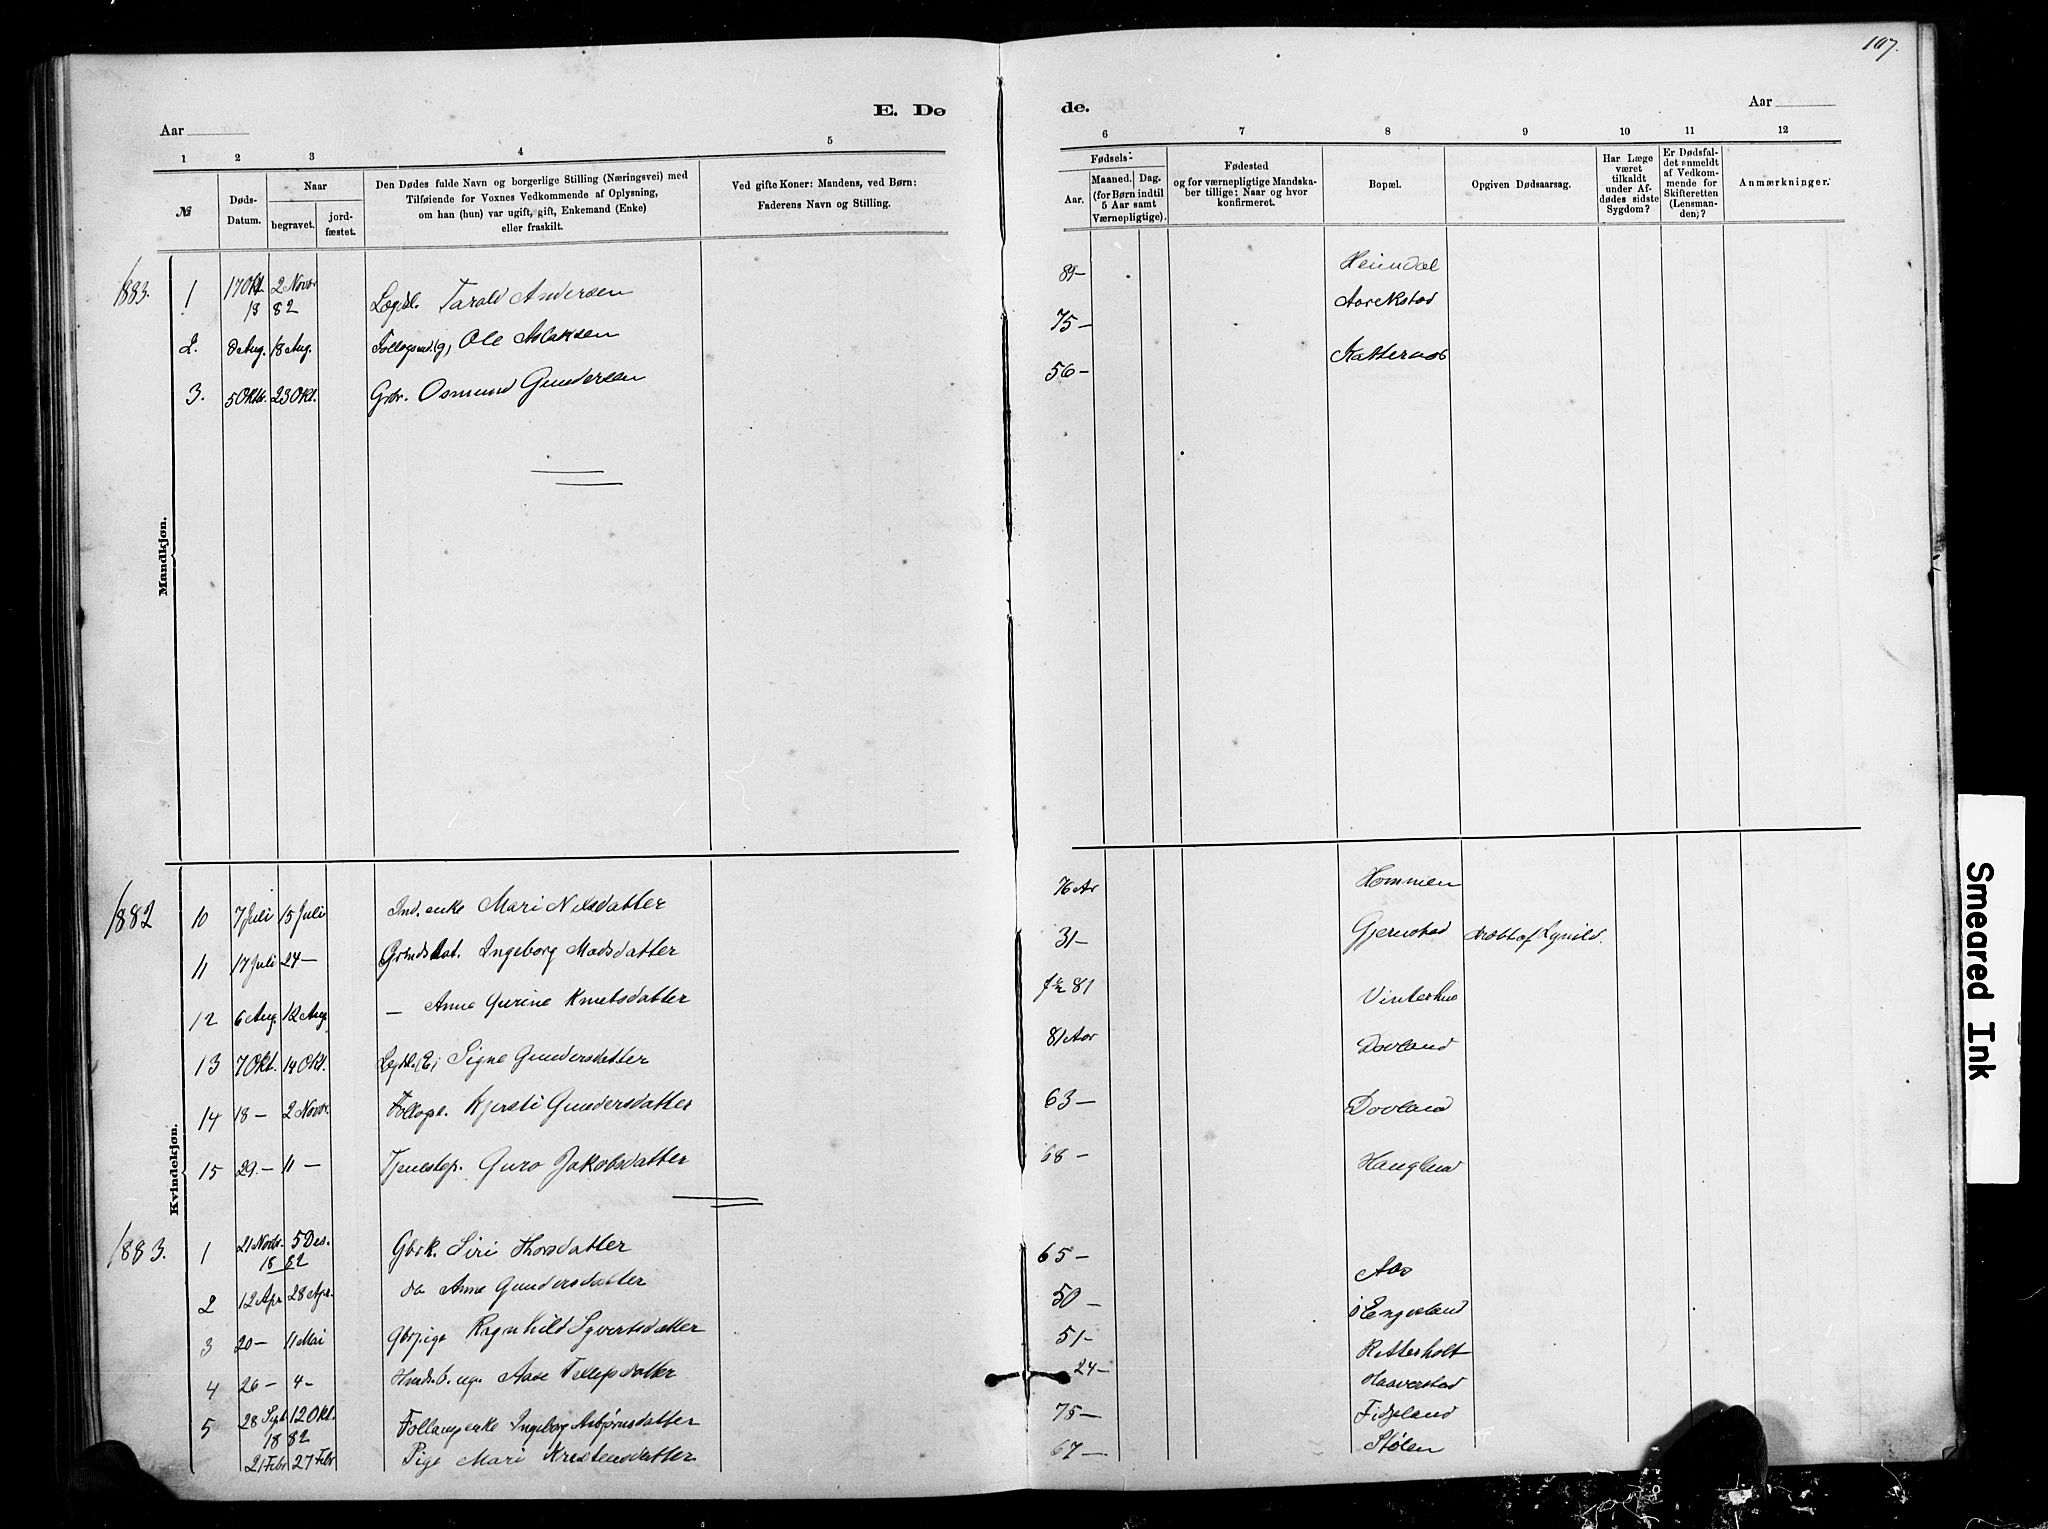 107.
E. Dø
de.
Aar
Aar
1 2 3 4 5
6 7 8 9 10 11 12
№
Døds-
Datum.
Naar
begravet.
jord-
fæstet.
Den Dødes fulde Navn og borgerlige Stilling (Næringsvei) med
Tilføiende for Voxnes Vedkommende af Oplysning,
om han (hun) var ugift, gift, Enkemand (Enke)
eller fraskilt.
Ved gifte Koner: Mandens, ved Børn:
Faderens Navn og Stilling.
Fødsels-
Aar.
Maaned. Dag.
(for Børn indtil
5 Aar samt
Værnepligtige).
Fødested
og for værnepligtige Mandska-
ber tillige: Naar og hvor
konfirmeret.
Bopæl.
Opgiven Dødsaarsag.
Har Læge
været
tilkaldt
under Af-
dødes sidste
Sygdom?
Er Dødsfal-
det anmeldt
af Vedkom-
mende for
Skifteretten
(Lensman-
den)?
Anmærkninger.
Mandkjøn.
1883. 1 17 Okt. 2 Novr 18 82 Lægdsl. Tarald Andersen 89- Heimdal
2. 8 Aug. 18 Aug. Ole Aslaksen 75- Aarekstad
3. 5 Oktbr. 23 Okt. Gbr. Osmund Gundersen 56-
Kvindekjøn.
1882 10 7 Juli 15 Juli Ind. enke Mari Nilsdatter 76 Ar Hommen
11 17 Juli 24- Grmdsdat. Ingeborg Madsdatter 31- Gjerustad
12 6 Aug. 12 Aug. - Anne Gurine Knutsdatter 81
13 7 Okt. 14 Okt. Signe Gundersdatter 81 Aar Dovland
14 18- 2 Novr. Kjersti Gundersdatter 63- Dovland
15 29.- 11- Tjenestep. Guro Jakobsdatter 68-
1883. 1 21 Novbr. 5 Des. 18 82 Gbrk. Siri Thorsdatter 65- Aas
2 12 Apr 28 Apr. do Anne Gundersdatter 50- Engesland
3 20- 11 Mai Gbrpige Ragnhild Syvertsdatter 51- Retterholt
4 26- 4- Aase Tellefsdatter 24- Haaverstad
5 28 Sept 12 Okt. 18 82 Ingeborg Asbjørnsdatter 75- Fidjeland
21 Febr 27 Febr Pige Mari Kristensdatter 67- Stølen
Smeared Ink